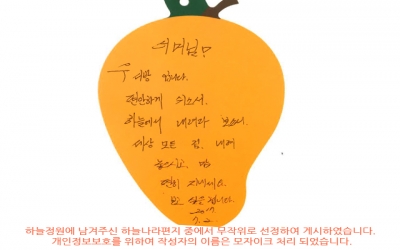 어머님!
입니다.
편안하게 쉬소서.
하늘에서 내려다 보소서.
세상 모든 짐, 내려
놓으시고, 맘
편히 지내세요.
보고 싶은 합니다.
2017.
하늘정원에 남겨주신 하늘나라편지 중에서 무작위로 선정하여 게시하였습니다.
개인정보보호를 위하여 작성자의 이름은 모자이크 처리 되었습니다.